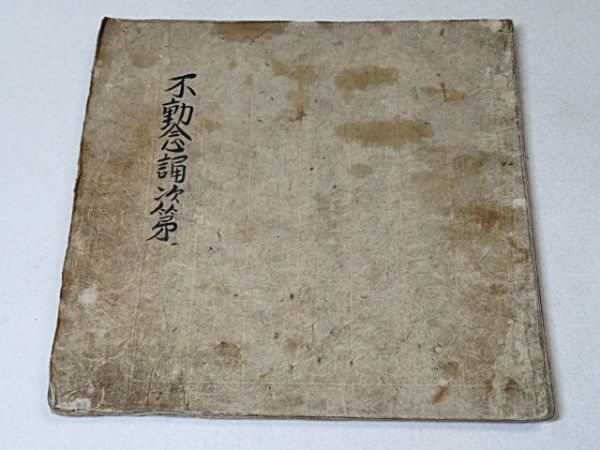 不動念誦次第